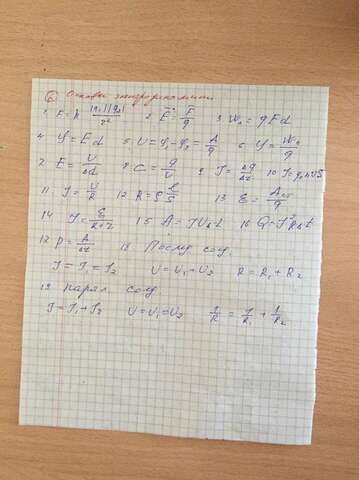 ⑥ Основы электродинамики
1 F=k |q₁||q₂|/r² 2 E⃗=F⃗/q 3 Wп=qEd
4 φ=Ed 5 U=φ₁-φ₂=A/q 6 φ=Wп/q
7 E=U/Δd 8 C=q/U 9 I=Δq/Δt 10 I=q₀nυS
11 I=U/R 12 R=ρ l/S 13 ε=Aст/q
14 I=ε/(R+r) 15 A=IUΔt 16 Q=I²RΔt
17 P=A/Δt 18 Послед. соед.
I=I₁=I₂ U=U₁+U₂ R=R₁+R₂
19 парал. соед
I=I₁+I₂ U=U₁=U₂ 1/R=1/R₁+1/R₂